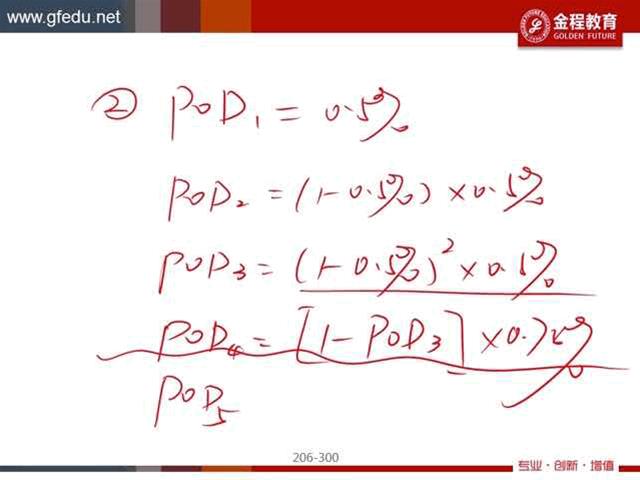 www.gfedu.net
金程教育
GOLDEN FUTURE
② POD₁ = 0.5%
POD₂ = (1-0.5%) × 0.5%
POD₃ = (1-0.5%)² × 0.5%
POD₄ = [1-POD₃] × 0.75%
POD₅
206-300
专业·创新·增值